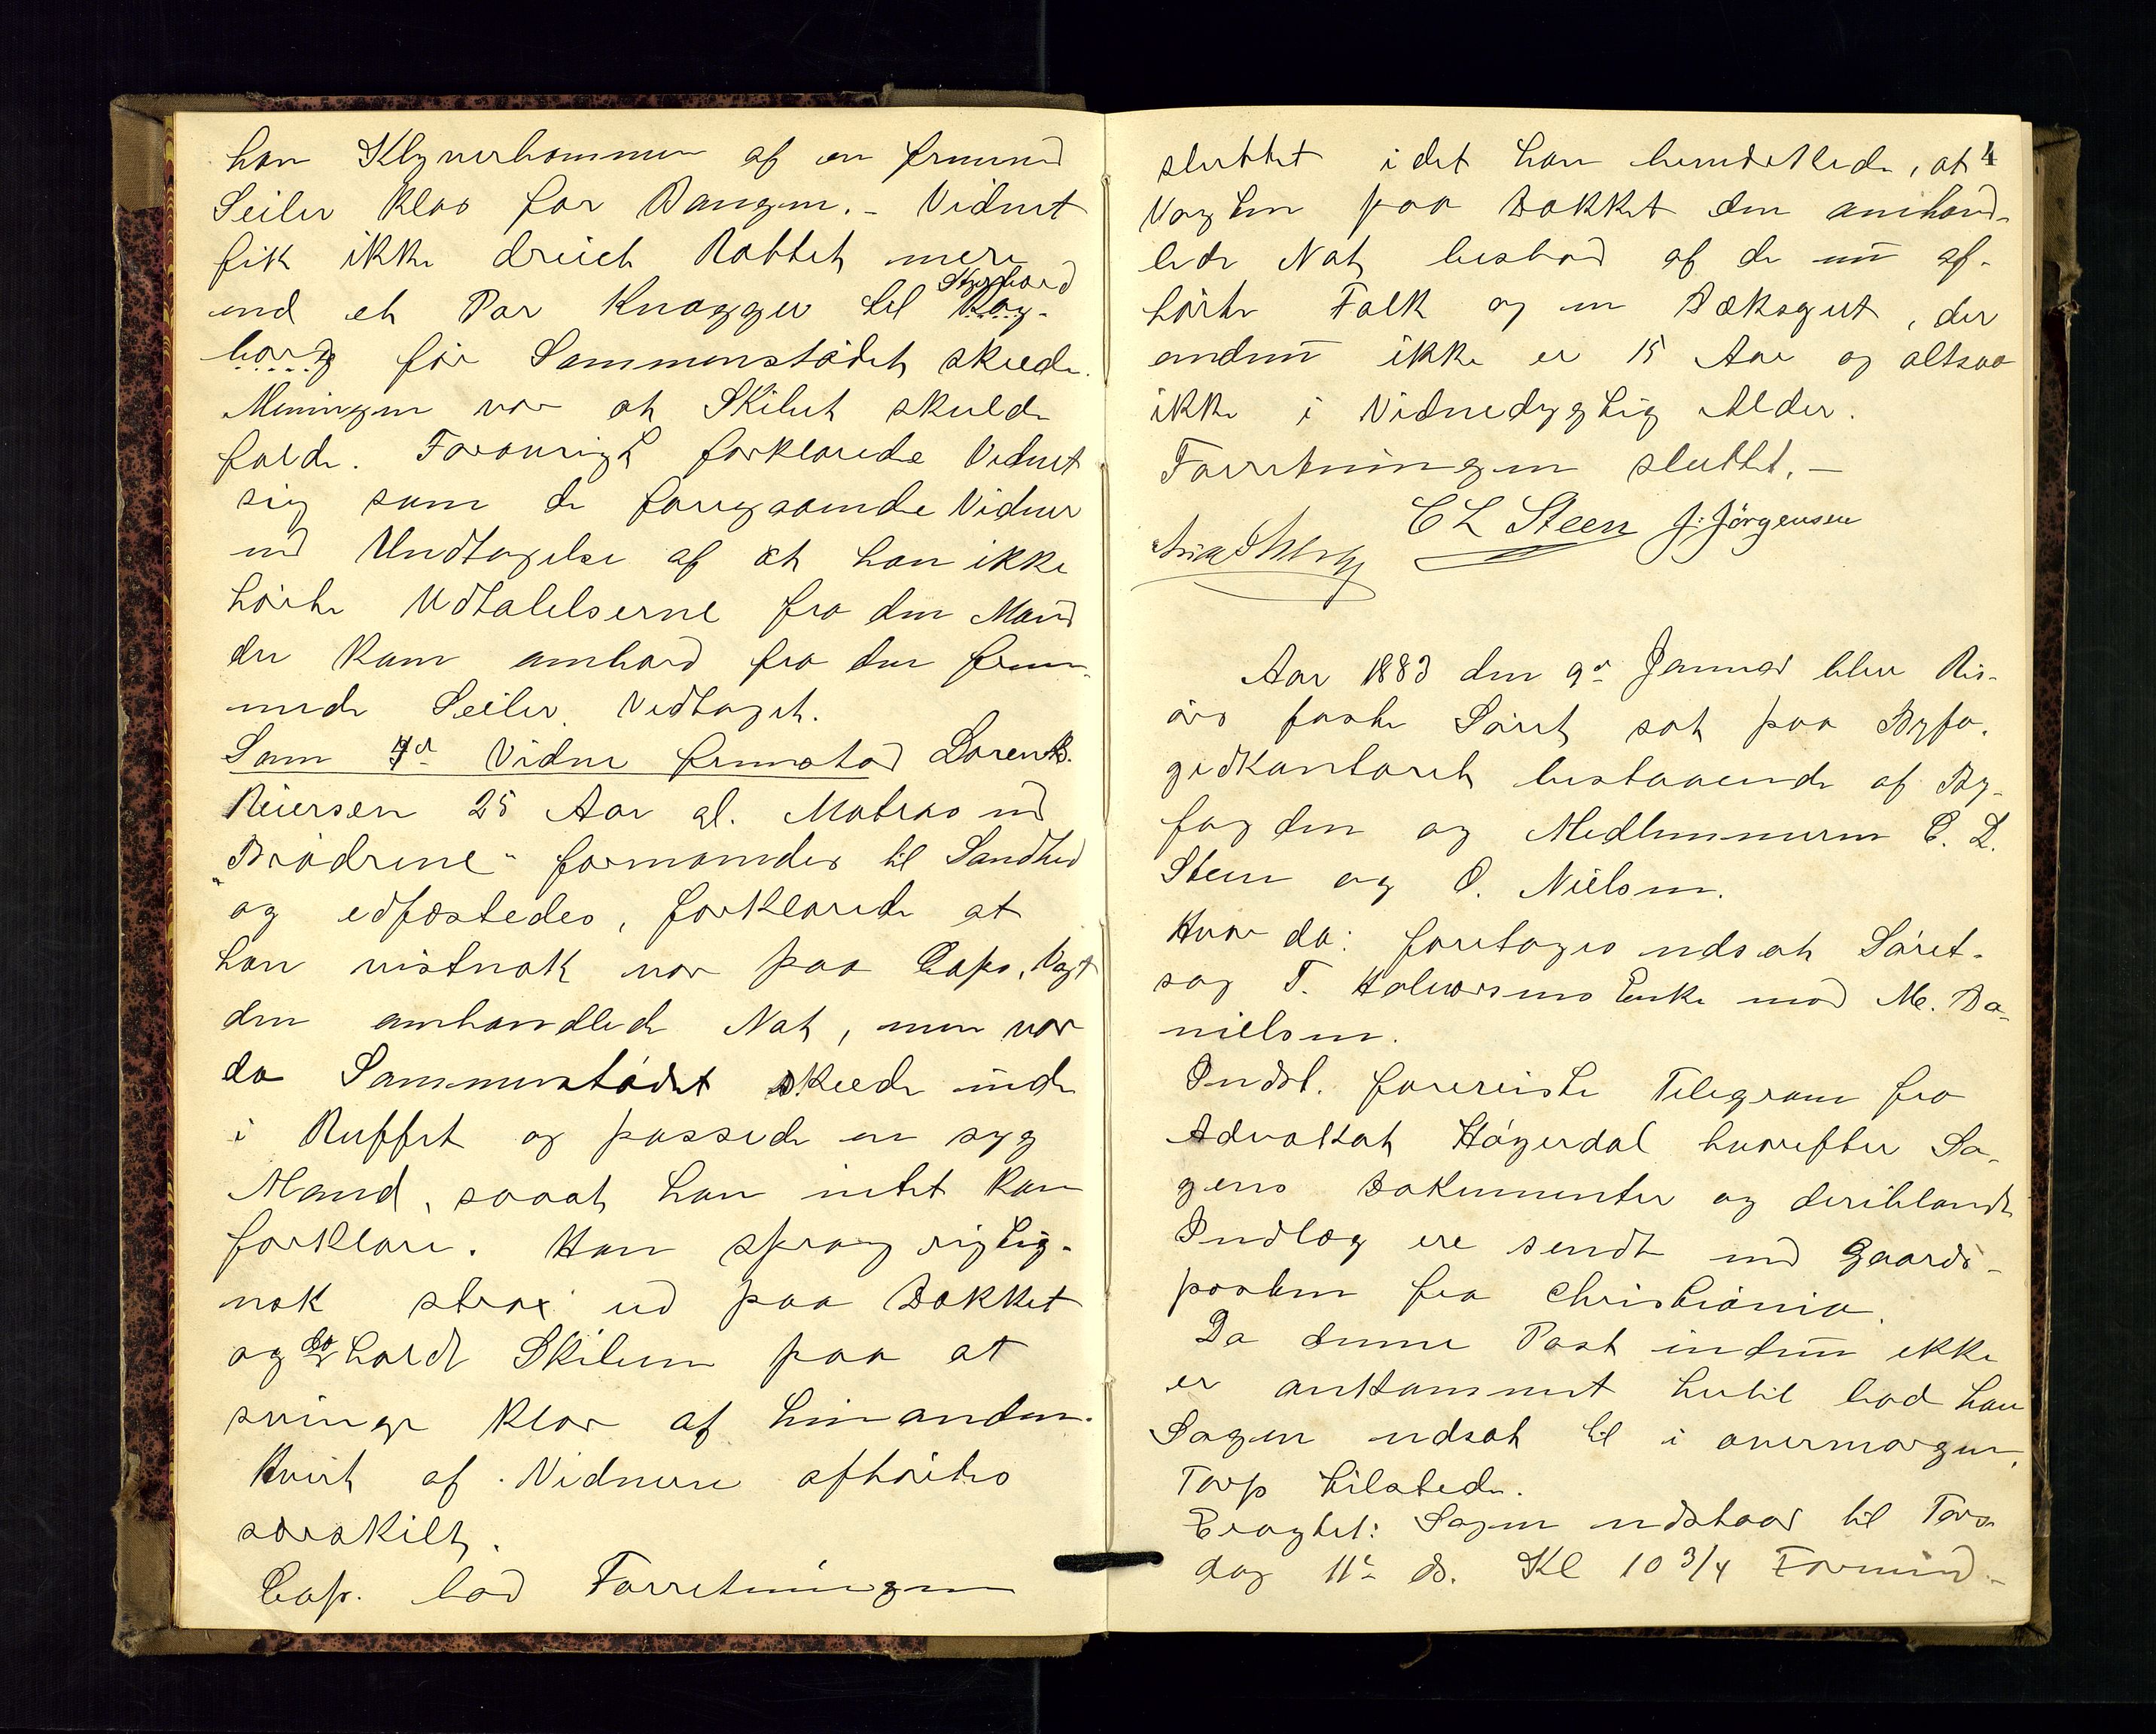 han Klyverbommen af en fremmed
Seiler klar for Bangen. - Vidnet
fik ikke dreiet Rattet mere
end et Par Knagger til Styrbord Bag-
bord før Sammenstødet skede.
Meningen var at Skibet skulde
falde. Forøvrigt forklarede Vidnet
sig som de foregaaende Vidner
med Undtagelse af at han ikke
hørte Udtalelserne fra den Mand
der kom ombord fra den frem-
mede Seiler. Vedtaget.
Som 4de Vidne fremstod Lorents
Reiersen 25 Aar gl. Matros med
"Brødrene" formandes til Sandhed
og edfæstedes, forklarede at
han vistnok var paa Caps. Vagt
den omhandlede Nat, men var
da Sammenstødet skede inde
i Ruffet og passede en syg
Mand, saaat han intet kan
forklare. Han sprang rigtig-
nok strax ud paa Dækket
og da holdt Skibene paa at
svinge klar af hinanden.
Hvert af Vidnerne afhørtes
særskilt.
Cap. lod Forretningen
sluttet idet han bemærkede, at 4
Vagten paa Dækket den omhand-
lede Nat bestod af de nu af-
hørte Folk og en Dæksgut, der
endnu ikke er 15 Aar og altsaa
ikke i vidnedygtig Alder.
Forretningen sluttet. -
C L Steen J. Jörgensen
Aar 1883 den 9de Januar blev Ris-
ørs faste Søret sat paa Byfo-
gedkontoret bestaaende af By-
fogden og Medlemmerne C. L.
Steen og O. Nielsen.
Hvor da: foretoges udsat Søret-
sag T. Halvorsens Enke mod M. Da-
nielsen.
Indst. foreviste Telegram fra
Advokat Høgerdal hvorefter Sa-
gens Dokumenter og deriblandt
Indlæg ere sendt med Gaards-
posten fra Christiania.
Da denne Post endnu ikke
er ankommet hertil bad han
Sagen udsat til i overmorgen,
Torp tilstede.
Eragtet: Sagen udstaar til Tors-
dag 11te ds. Kl 10 3/4 Formid-